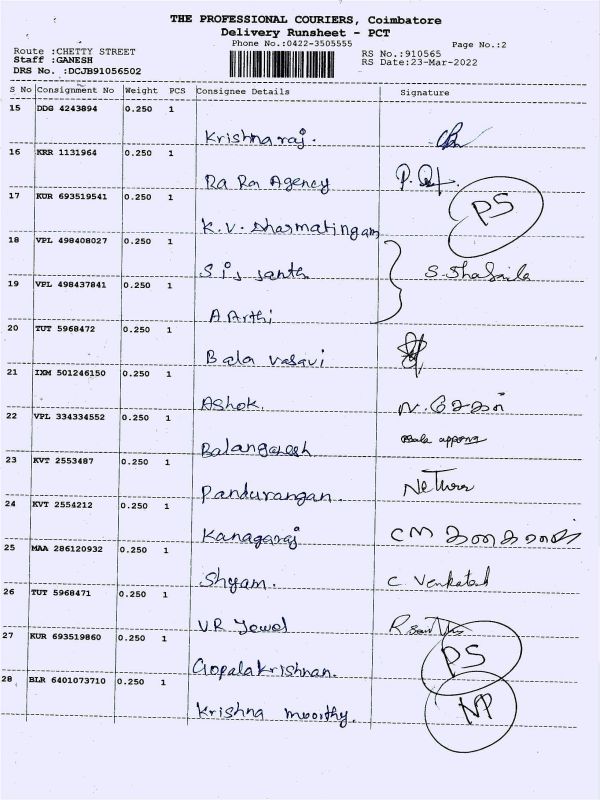 THE PROFESSIONAL COURIERS, Coimbatore
Delivery Runsheet - PCT
Phone No.:0422-3505555
Page No.:2
Route :CHETTY STREET
RS No.:910565
Staff :GANESH
RS Date:23-Mar-2022
DRS No. :DCJB91056502
S No Consignment No Weight PCS Consignee Details Signature
15 DDG 4243894 0.250 1
Krishnaraj.
16 KRR 1131964 0.250 1
Ra Ra Agency
17 KUR 693519541 0.250 1
PS
K.V. Dharmalingam
18 VPL 498408027 0.250 1
19 VPL 498437841 0.250 1
A Arthi
20 TUT 5968472 0.250 1
Bala vasavi
21 IXM 501246150 0.250 1
Ashok.
22 VPL 334334552 0.250 1
Balanganesh
23 KVT 2553487 0.250 1
Pandurangan.
24 KVT 2554212 0.250 1
Kanagaraj CM கனகராஜ்
25 MAA 286120932 0.250 1
Shyam. C Venkatesh
26 TUT 5968471 0.250 1
VR Jewel
27 KUR 693519860 0.250 1
PS
Gopalakrishnan.
28 BLR 6401073710 0.250 1
NP
Krishna moorthy.